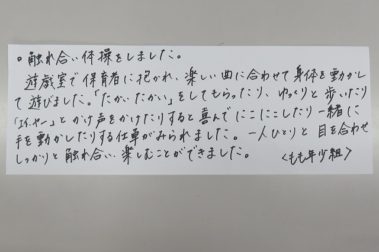 ○ 触れ合い体操をしました。
遊戯室で保育者に抱かれ、楽しい曲に合わせて身体を動かし
て遊びました。「たかいたかい」をしてもらったり、ゆっくりと歩いたり
「エイ、ヤー」とかけ声をかけたりすると喜んでにこにこしたり一緒に
手を動かしたりする仕草がみられました。一人ひとりと目を合わせ
しっかりと触れ合い、楽しむことができました。
〈もも年少組〉